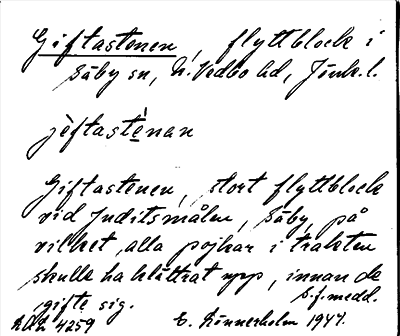 Giftastenen, flyttblock i
Säby sn, N. Vedbo hd, Jönk. l.
jèftastènan
Giftastenen, stort flyttblock
vid Juditsmålen, Säby, på
vilket, alla pojkar i trakten
skulle ha klättrat upp, innan de
gifte sig. S.f. medd.
4259 E. Rönnerholm 1947.